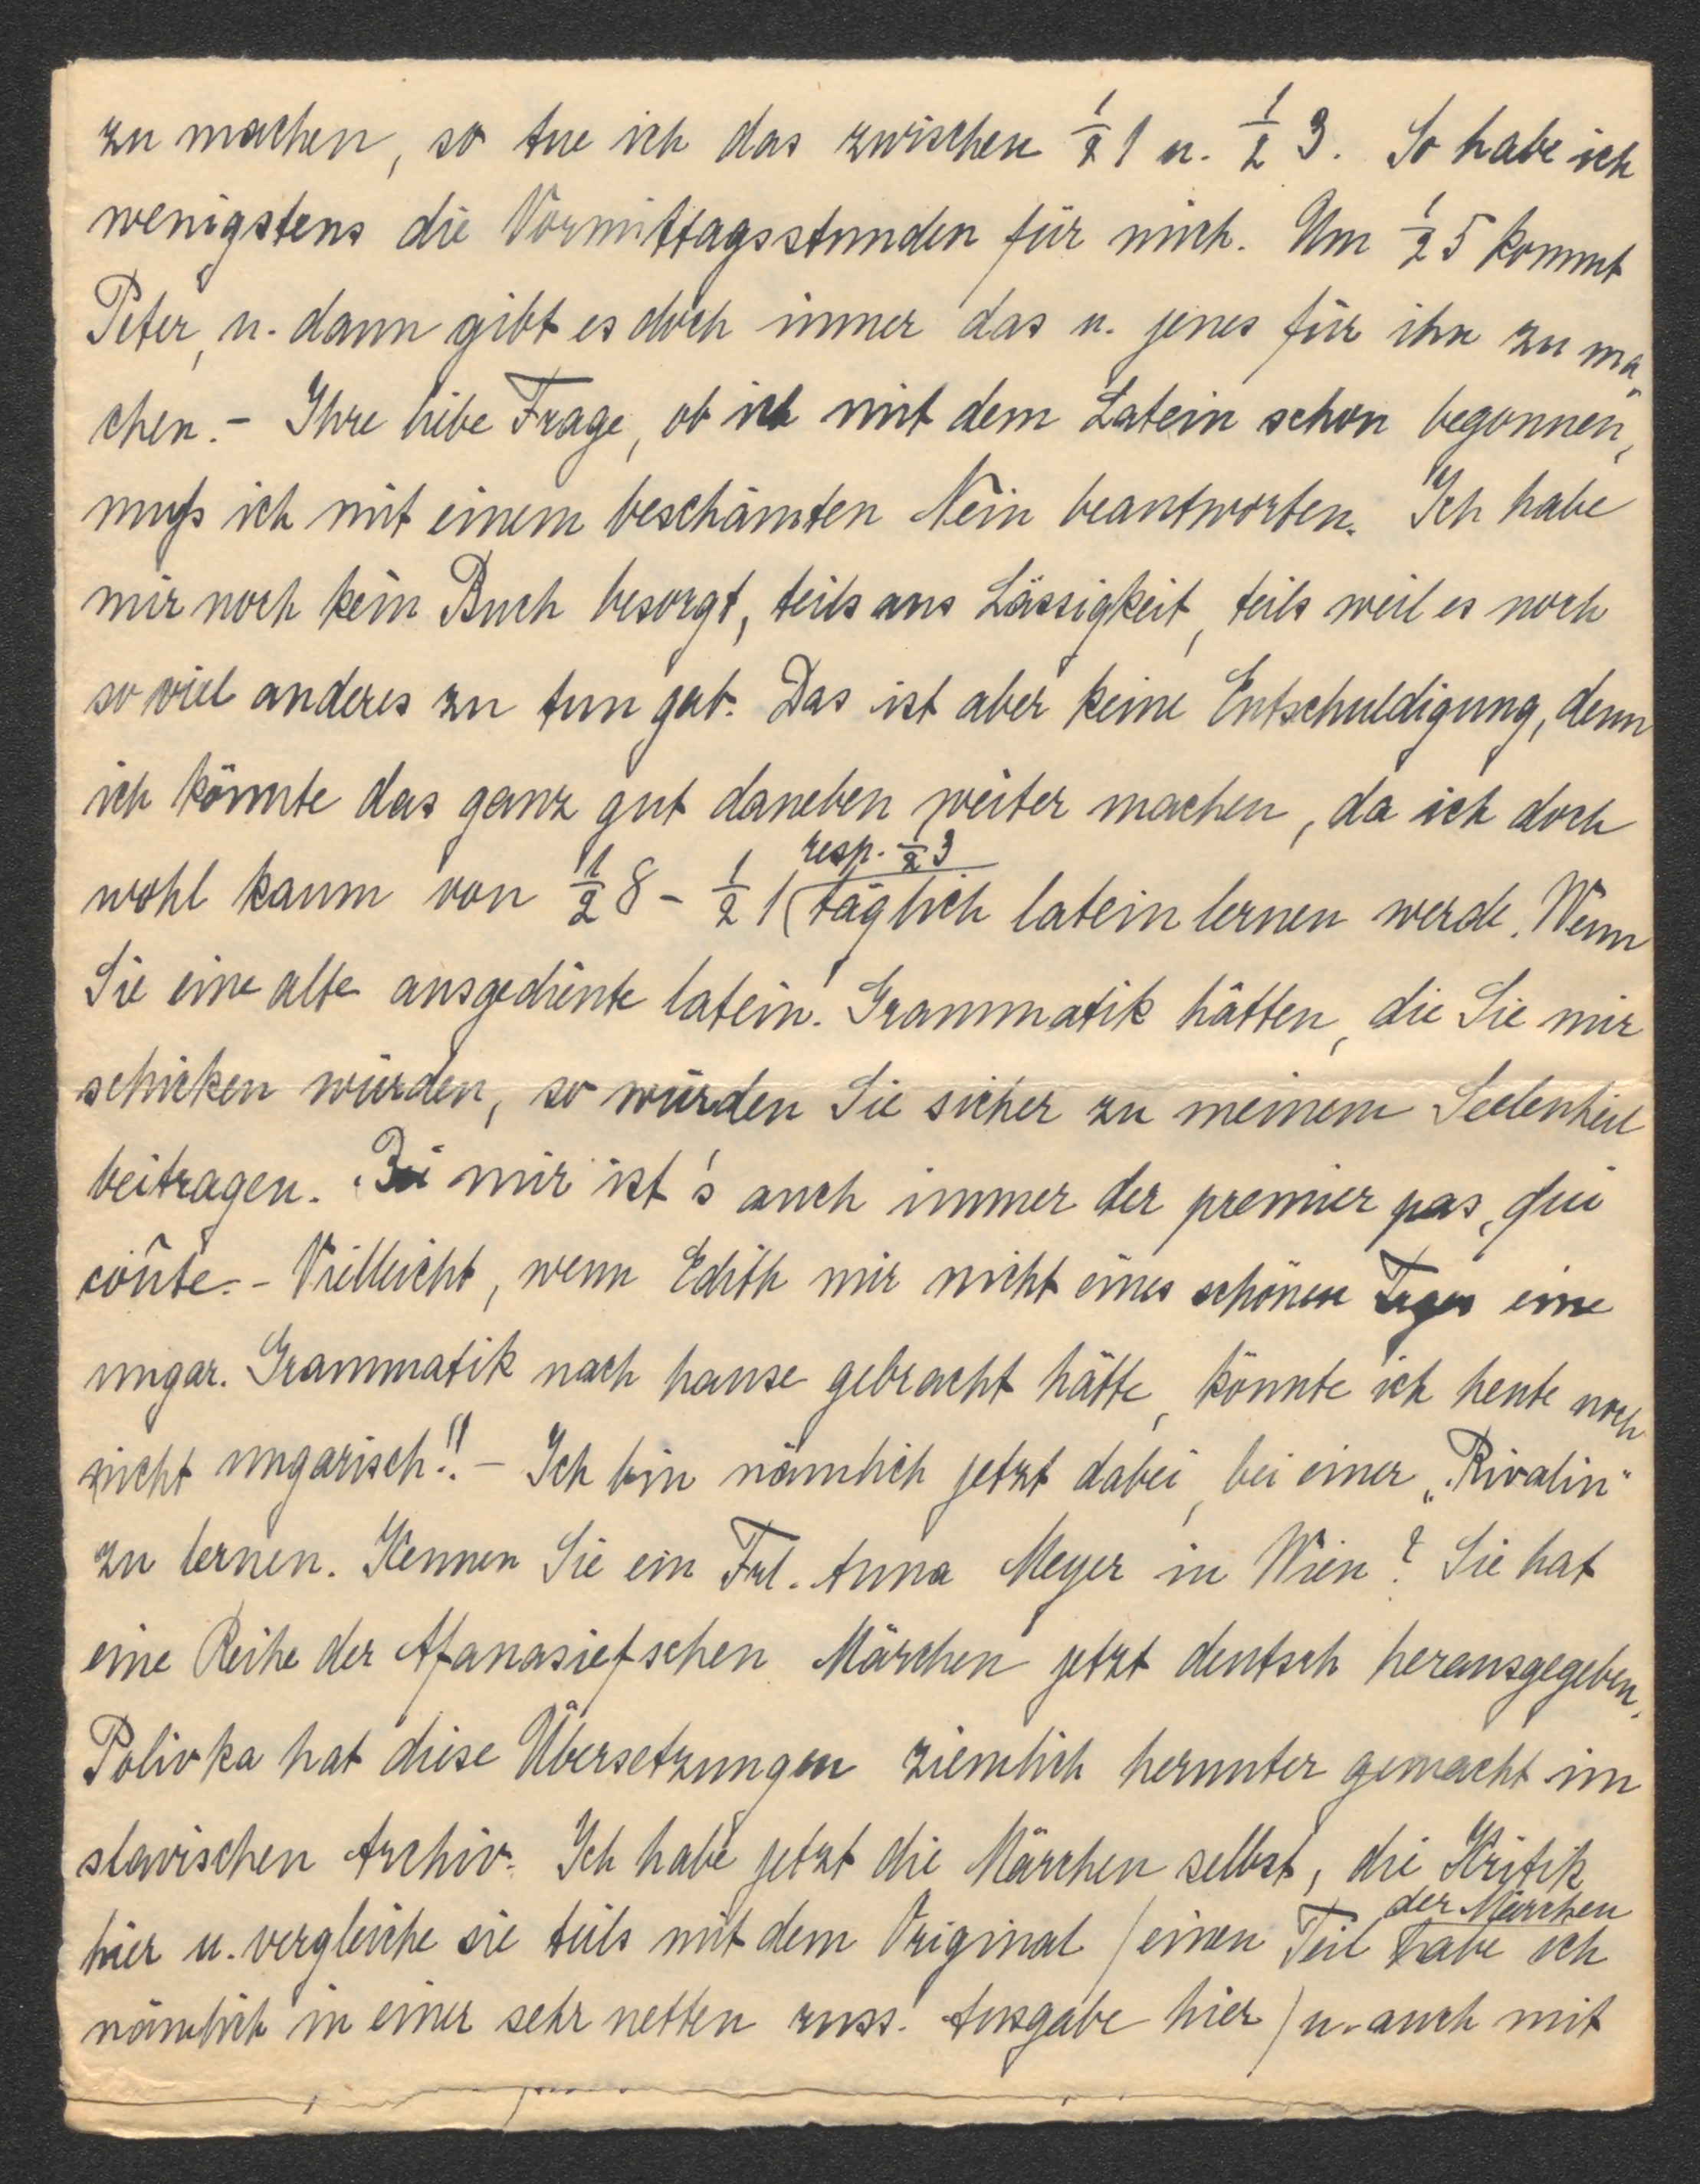 zu machen, so tue ich das zwischen ½ 1 u. ½ 3. So habe ich
wenigstens die Vormittagsstunden für mich. Um ½ 5 kommt
Peter, u. dann gibt es doch immer das u. jenes für ihn zu ma-
chen. - Ihre liebe Frage, ob ich mit dem Latein schon begonnen,
muß ich mit einem beschämten Nein beantworten. Ich habe
mir noch kein Buch besorgt, teils aus Lässigkeit, teils weil es noch
so viel anderes zu tun gab. Das ist aber keine Entschuldigung, denn
ich könnte das ganz gut daneben weiter machen, da ich doch
resp. ½ 3
wohl kaum von ½ 8 - ½ 1 ( täglich latein lernen werde. Wenn
Sie eine alte ausgediente latein. Grammatik hätten, die Sie mir
schicken würden, so würden Sie sicher zu meinem Seelenheil
beitragen. Bei mir ist's auch immer der premier pas, qui
coûte. - Vielleicht, wenn Edith mir nicht eines schönen Tages eine
ungar. Grammatik nach hause gebracht hätte, könnte ich heute noch
nicht ungarisch!! - Ich bin nämlich jetzt dabei, bei einer „Rivalin"
zu lernen. Kennen Sie ein Frl. Anna Meyer in Wien? Sie hat
eine Reihe der Afanasiefschen Märchen jetzt deutsch herausgegeben.
Polivka hat diese Übersetzungen ziemlich herunter gemacht im
slavischen Archiv. Ich habe jetzt die Märchen selbst, die Kritik
der Märchen
hier u. vergleiche sie teils mit dem Original / einen Teil habe ich
nämlich in einer sehr netten russ. Ausgabe hier / u. auch mit